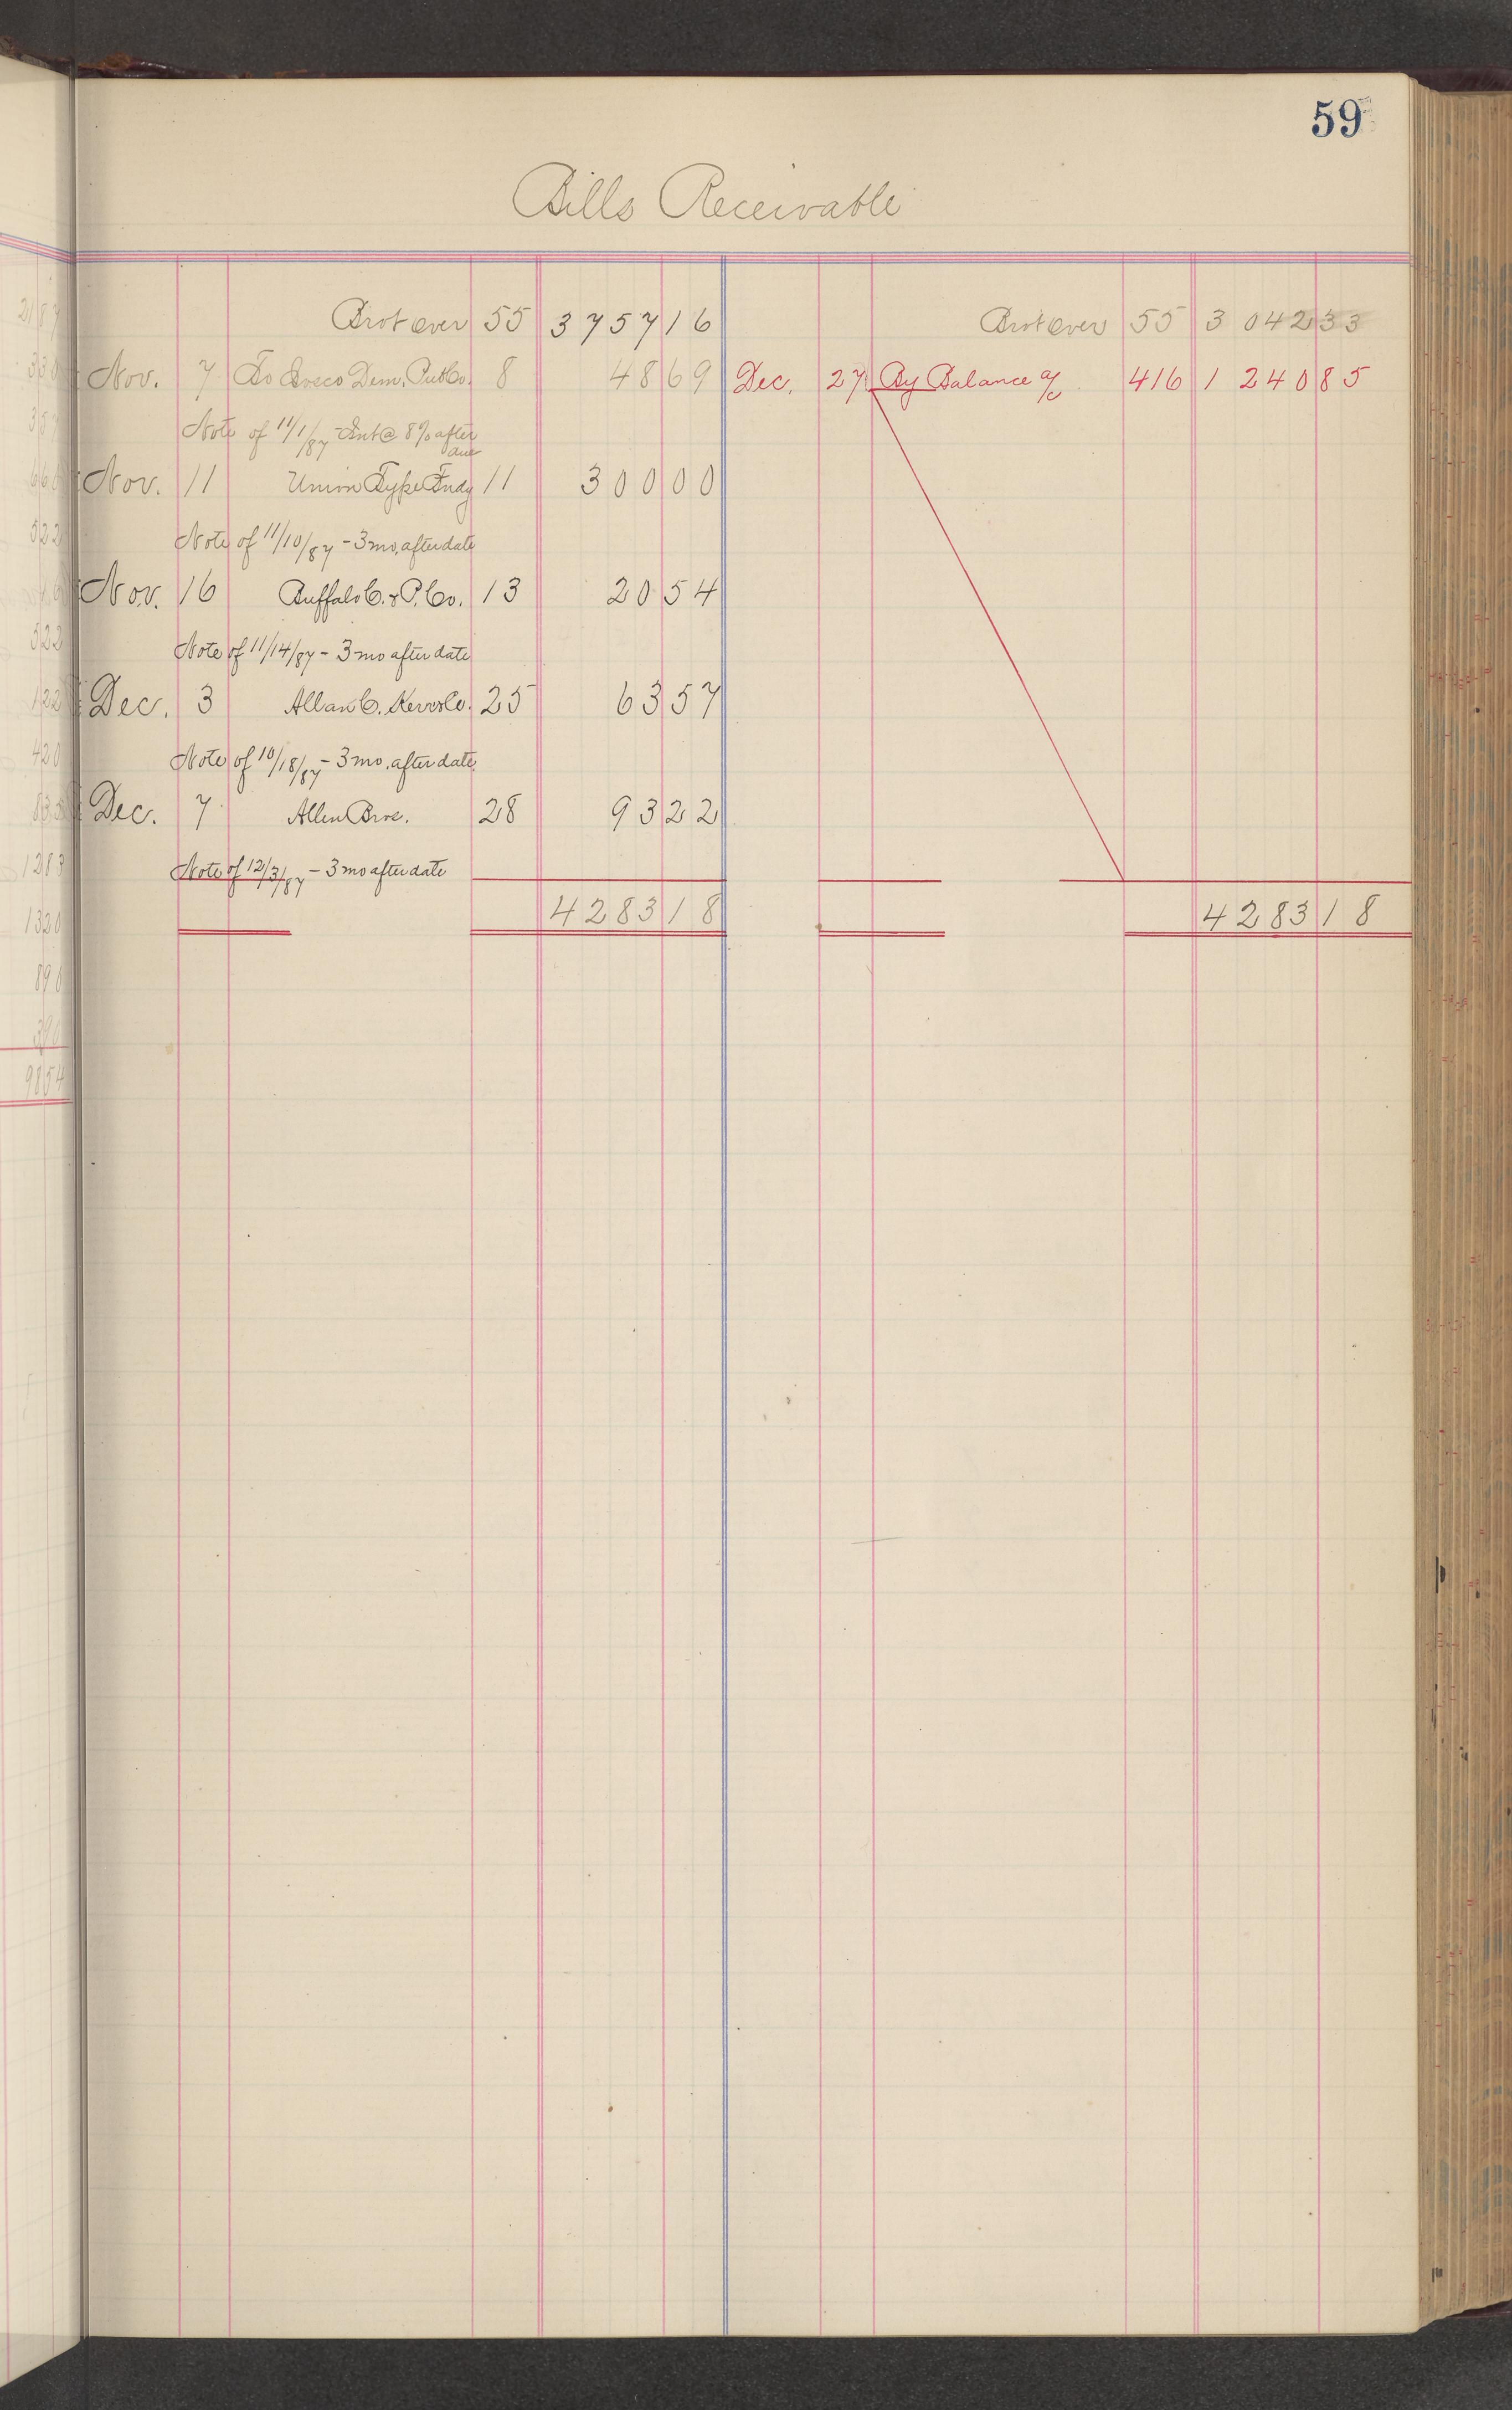 59
Bills Receivable
Brot over 55 3757 16
Nov. 7 To Dem. Pub Co. 8 48 69
Note of 11/1/87 - Int @ 8% after
due
Nov. 11 Union Type Fndy 11 300 00
Note of 11/10/87 - 3 mo. after date
Nov. 16 Buffalo C. & P. Co. 13 20 54
Note of 11/14/87 - 3 mo after date
Dec. 3 Allan C. Kerr & Co. 25 63 57
Note of 10/18/87 - 3 mo. after date
Dec. 7 Allen Bros. 28 93 22
Note of 12/3/87 - 3 mo after date
4283 18
Brot over 55 3042 33
Dec. 27 By Balance a/c 416 1240 85
4283 18